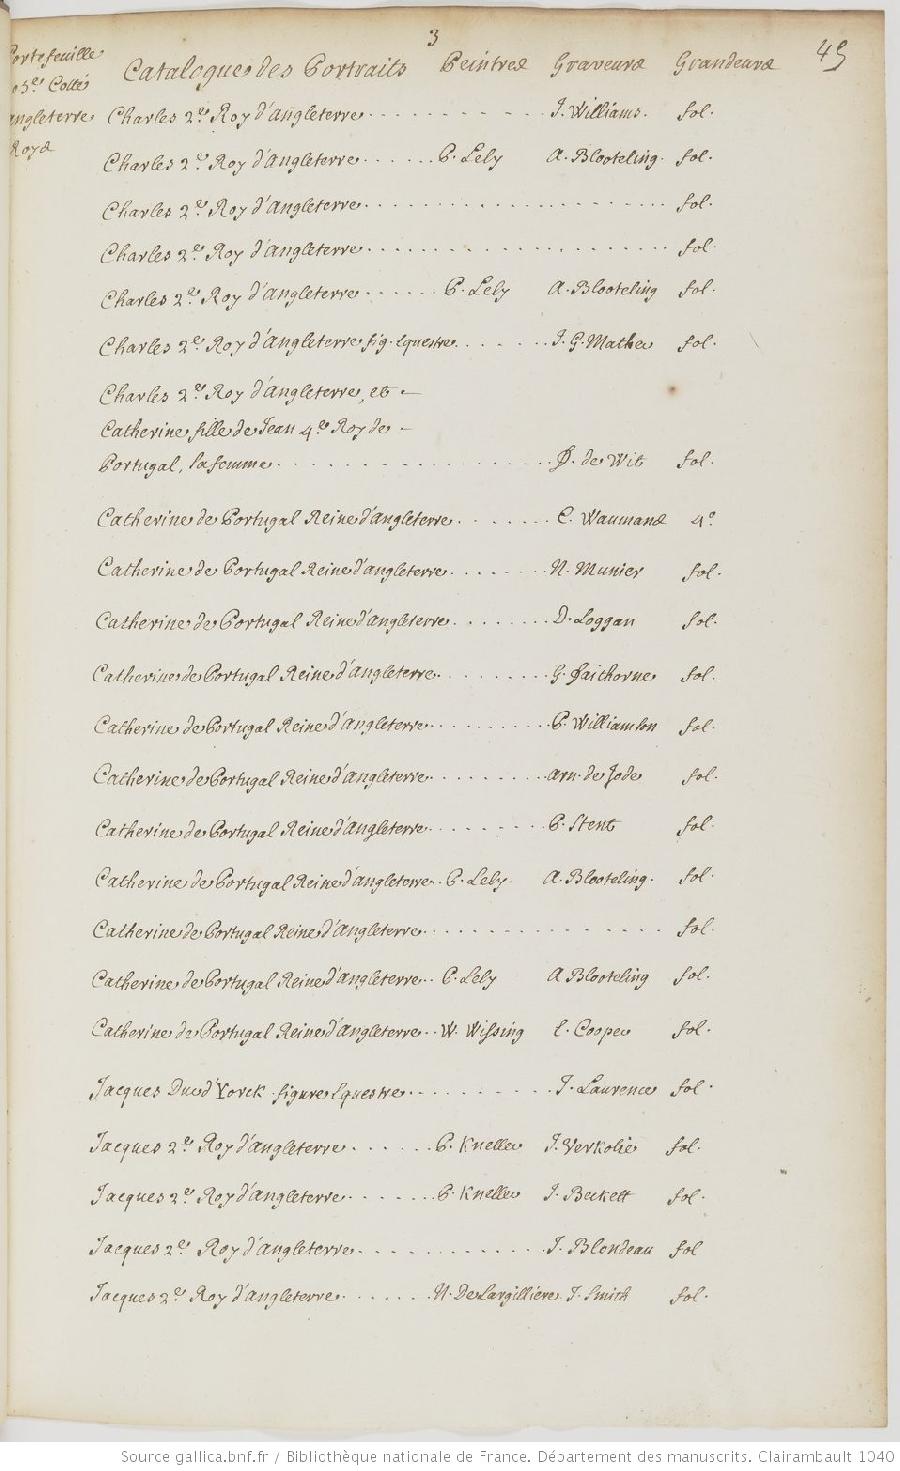 3
45
Portefeuille
Cotté
Angleterre
Roys
Catalogue des Portraits Peintres Graveurs Grandeurs
Charles 2e. Roy d'Angleterre . . . . . . . . . . . J. Williams. fol.
Charles 2e. Roy d'Angleterre . . . . . . P. Lely A. Blooteling. fol.
Charles 2e. Roy d'Angleterre . . . . . . . . . . . . . . . . . . . fol.
Charles 2e. Roy d'Angleterre . . . . . . . . . . . . . . . . . . . fol.
Charles 2e. Roy d'Angleterre . . . . . . P. Lely A. Blooteling fol.
Charles 2e. Roy d'Angleterre fig. Equestre . . . . . . . fol.
Charles 2e. Roy d'Angleterre, et –
Catherine fille de Jean 4e. Roy de –
Portugal, sa femme . . . . . . . . . . . . . . . . . . F. de Wit fol.
Catherine de Portugal Reine d'Angleterre . . . . . . . C. Waumans 4o
Catherine de Portugal Reine d'Angleterre . . . . . . . N. Munier fol.
Catherine de Portugal Reine d'Angleterre . . . . . . . D. Loggan fol.
Catherine de Portugal Reine d'Angleterre . . . . . . . . G. Faithorne fol.
Catherine de Portugal Reine d'Angleterre . . . . . . . . P. Williamson fol.
Catherine de Portugal Reine d'Angleterre . . . . . . . . Arn. de Jode fol.
Catherine de Portugal Reine d'Angleterre . . . . . . . . P. Stent fol.
Catherine de Portugal Reine d'Angleterre . . P. Lely. A. Blooteling. fol.
Catherine de Portugal Reine d'Angleterre . . . . . . . . . . . . . . . fol.
Catherine de Portugal Reine d'Angleterre . . P. Lely A Blooteling fol.
Catherine de Portugal Reine d'Angleterre . . W. Wissing E. Cooper fol.
Jacques Duc d'Yorck figure Equestre . . . . . . . . . . J. Laurence fol.
Jacques 2e. Roy d'Angleterre . . . . . . G. Kneller J. Verkolie fol.
Jacques 2e. Roy d'Angleterre . . . . . . G. Kneller J. Beckett fol.
Jacques 2e. Roy d'Angleterre . . . . . . . . . . . . . J. Blondeau fol
Jacques 2e. Roy d'Angleterre . . . . . . N. De Largilliere J. Smith fol.
Source gallica.bnf.fr / Bibliothèque nationale de France. Département des manuscrits. Clairambault 1040